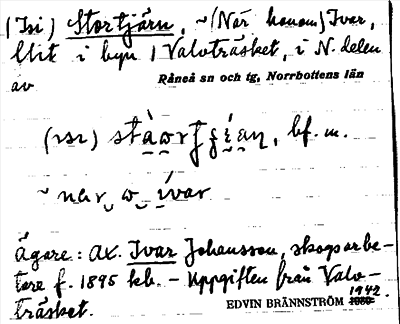 (Isi) Stortjärn, ~ (När honom) Ivar,
blit i byn i Valvträsket, i N. delen
av
Råneå sn och tg, Norrbottens län
bf. m.
Ägare: Ax. Ivar Johansson, skogsarbe-
tare f. 1895 kb. – Uppgiften från Valv-
träsket.
1942.
EDVIN BRÄNNSTRÖM 1930